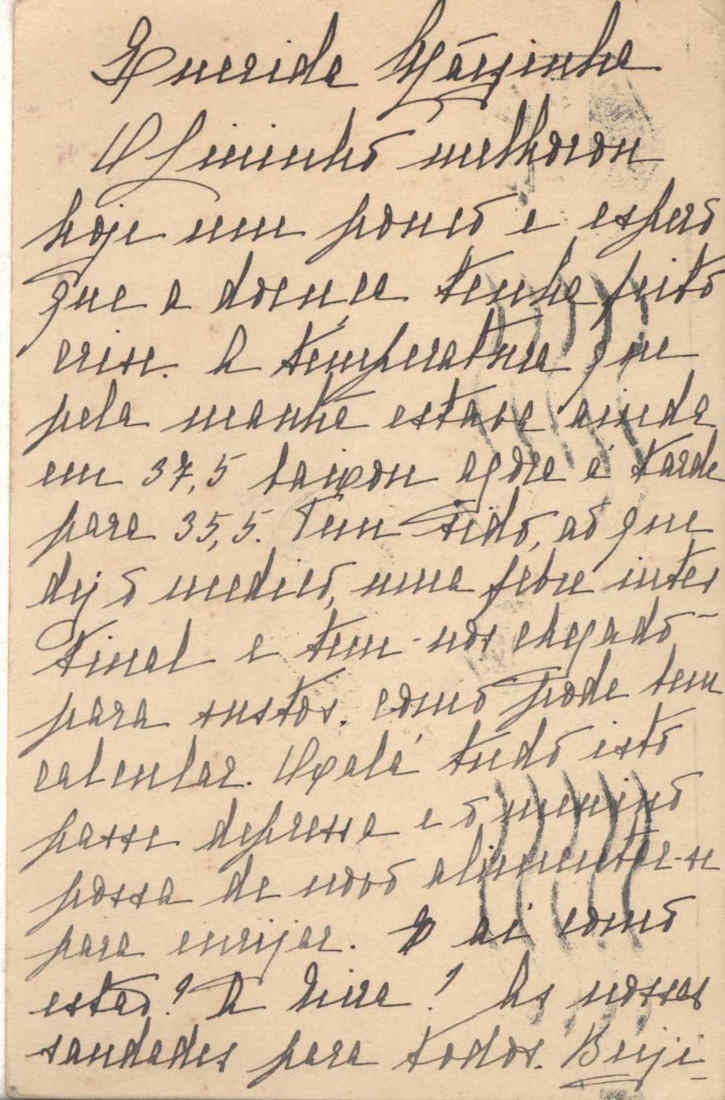 Querida Mãesinha
O Quininho melhorou
hoje um pouco e espero
que a doença tenha feito
crise. A temperatura que
pela manhã estava ainda
em 37,5 baixou agora é tarde
para 35,5. Tem sido, ao que
diz o medico, uma febre intes
tinal e tem-nos chegado
para sustos. como pode bem
calcular. Oxalá tudo isto
passe depressa e o menino
possa de novo alimentar-se
para enrijar. E ai como
estão? A ? As nossas
saudades para todos. Beiji-